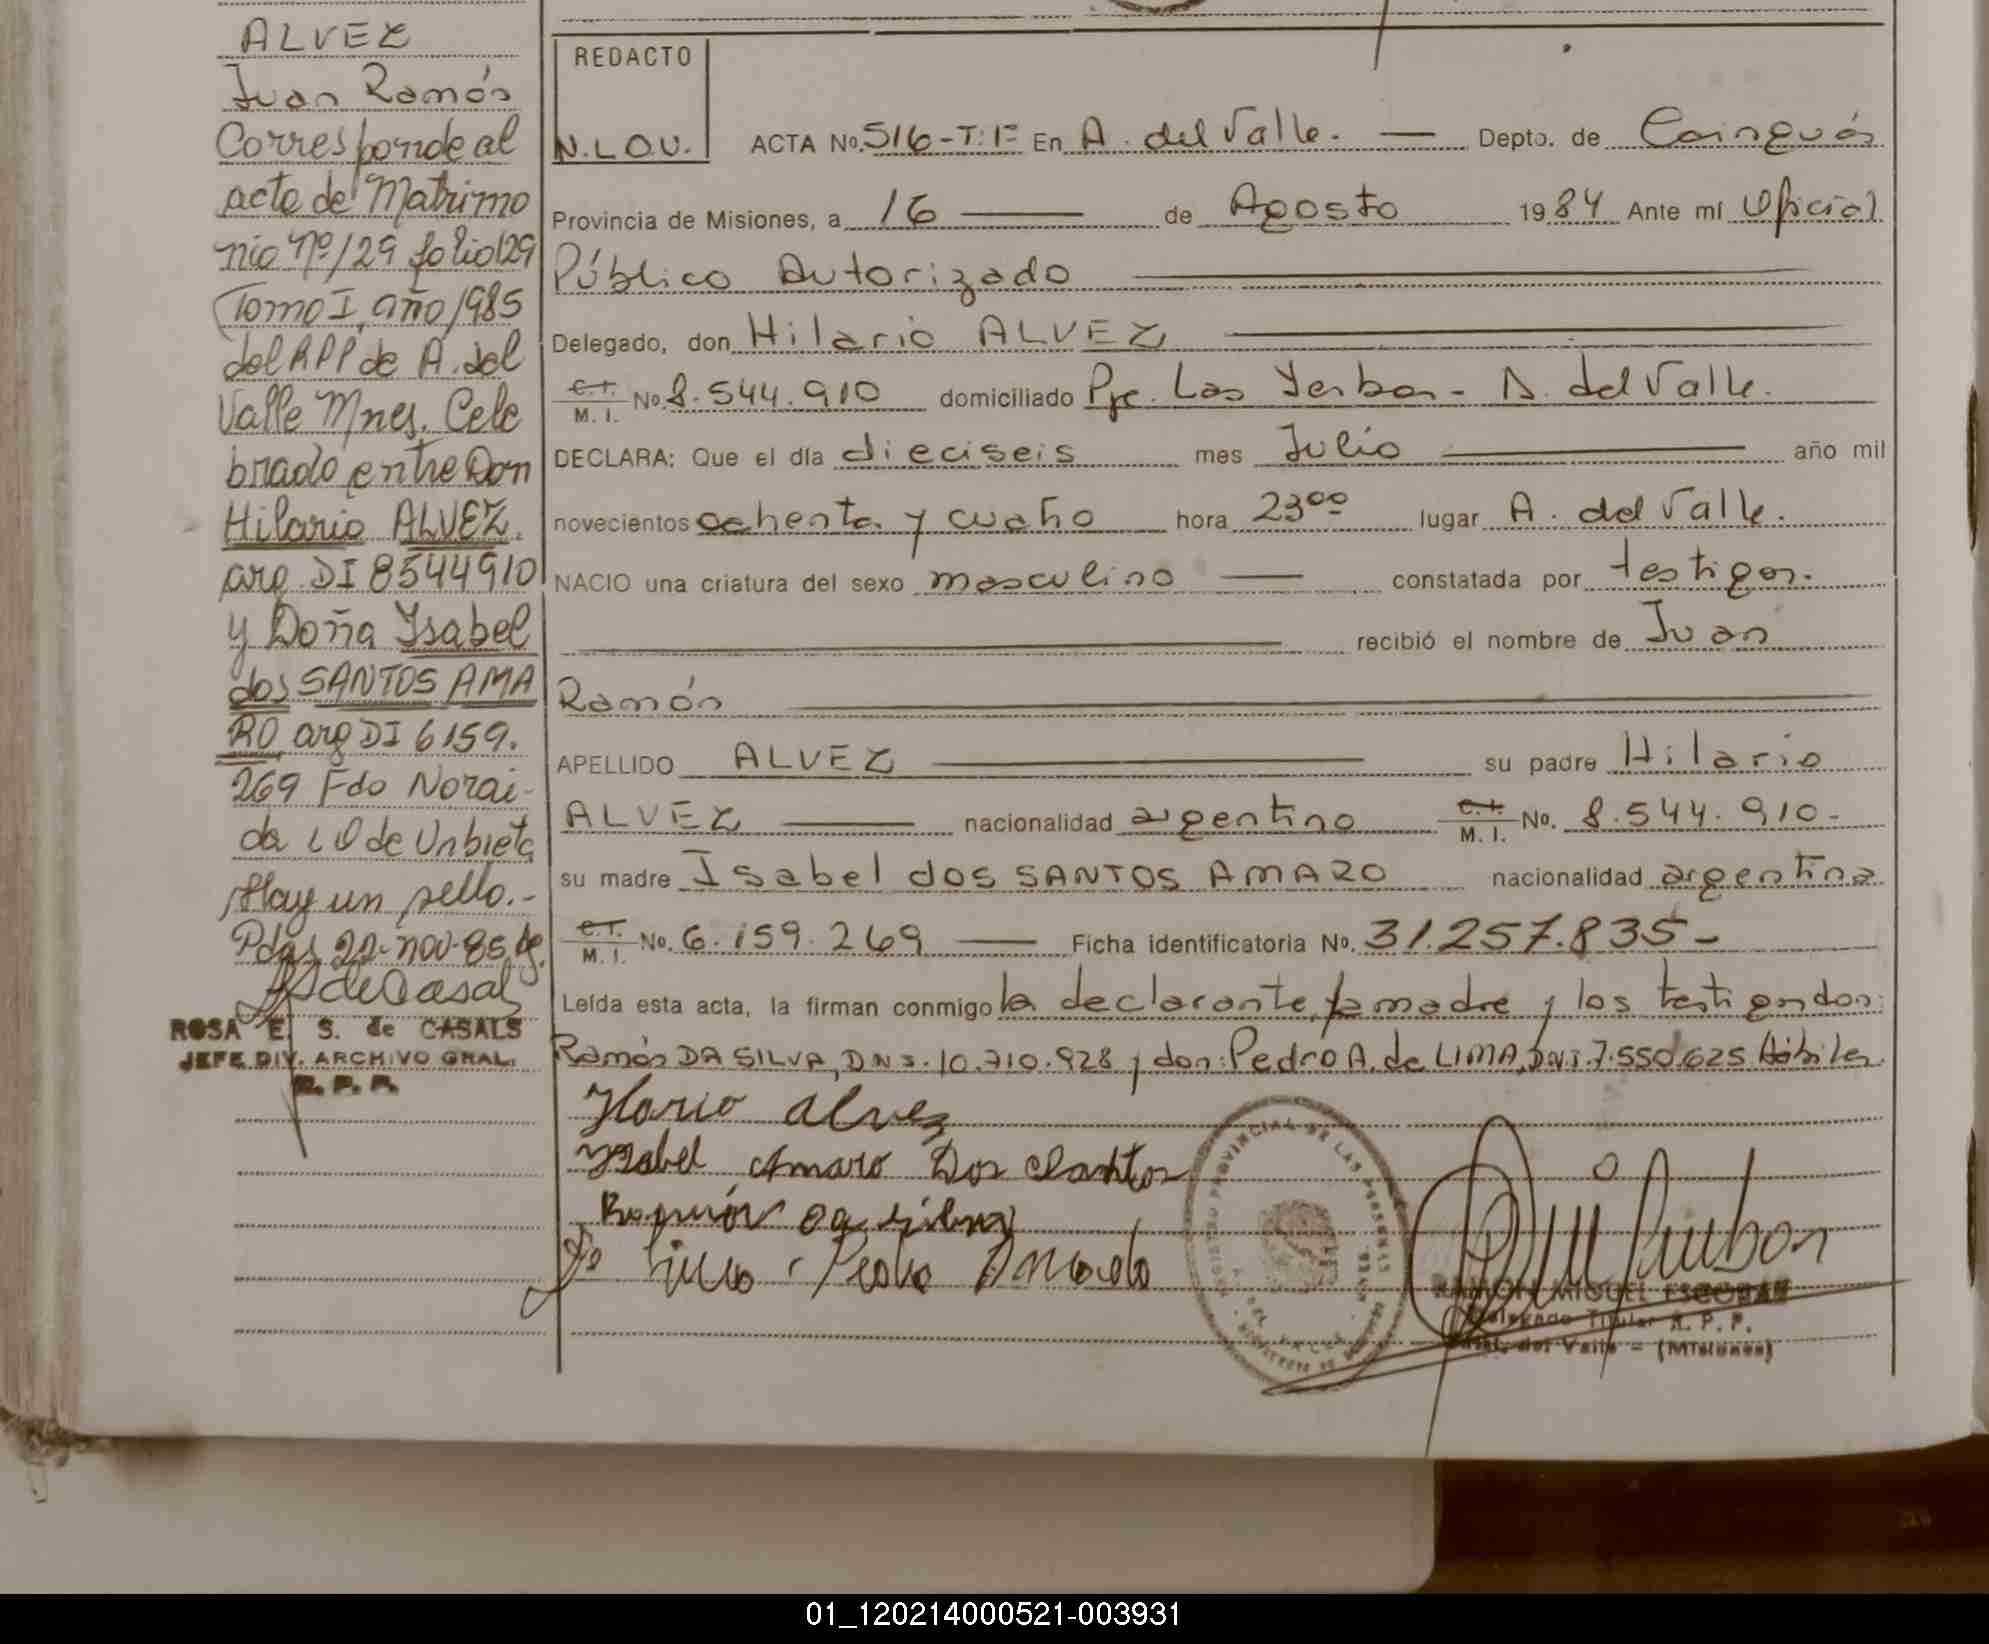 ALVEZ
Juan Ramón
Corresponde al
acta de Matrimo
nio Nº 129 folio 129
Tomo I, año 1985
del RPP de A. del
Valle Mnes. Cele
brado entre Don
Hilario ALVEZ.
arg. DI 8544910
y Doña Isabel
dos SANTOS AMA
RO arg DI 6159.
269 Fdo Norai-
da LO de Urbieta
Hay un sello.-
Pdas 22-nov-85
ROSA E. S. de CASALS
JEFE DIV. ARCHIVO GRAL.
R. P. P.
REDACTO
N.L.O.V.
ACTA No. 516-T:1º En A. del Valle. — Depto. de Cainguás
Provincia de Misiones, a 16 — de Agosto 1984 Ante mí Oficial
Público Autorizado
Delegado, don Hilario ALVEZ
C.I. M. I. No. 8.544.910 domiciliado Pje. Las Yerbas - A. del Valle.
DECLARA: Que el día dieciseis mes Julio — año mil
novecientos ochenta y cuatro hora 23⁰⁰ lugar A. del Valle.
NACIO una criatura del sexo masculino — constatada por testigos.
recibió el nombre de Juan
Ramón
APELLIDO ALVEZ — su padre Hilario
ALVEZ — nacionalidad argentino C.I. M. I. No. 8.544.910-
su madre Isabel dos SANTOS AMARO nacionalidad argentina
C.I. M. I. No. 6.159.269 — Ficha identificatoria No. 31.257.835-
Leída esta acta, la firman conmigo la declarante, la madre y los testigos don:
Ramón DA SILVA, D.N.I. 10.710.928 y don: Pedro A. de LIMA, D.N.I. 7.550.625 Hábiles.
Ilario alvez
Ysabel Amaro Dos Santos
Ramón da silva
PROVINCIAL DE LAS PERSONAS
RAMON MIGUEL ESCOBAR
Delegado Titular R. P. P.
del Valle - (Misiones)
01_120214000521-003931